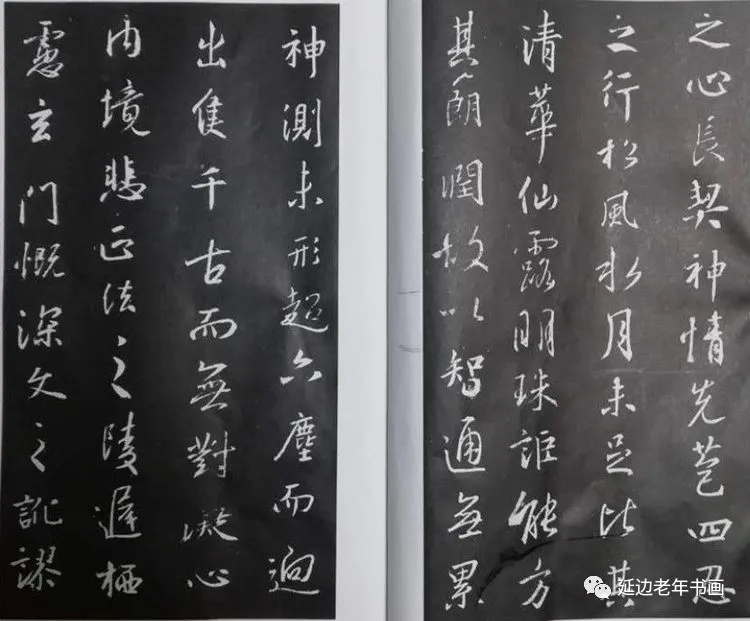 之心長契神情先苞四忍
之行松風水月未足比其
清華仙露明珠詎能方
其朗潤故以智通無累
神測未形超六塵而迥
出隻千古而無對凝心
內境悲正法之陵遲栖
慮玄門慨深文之訛謬
延边老年书画